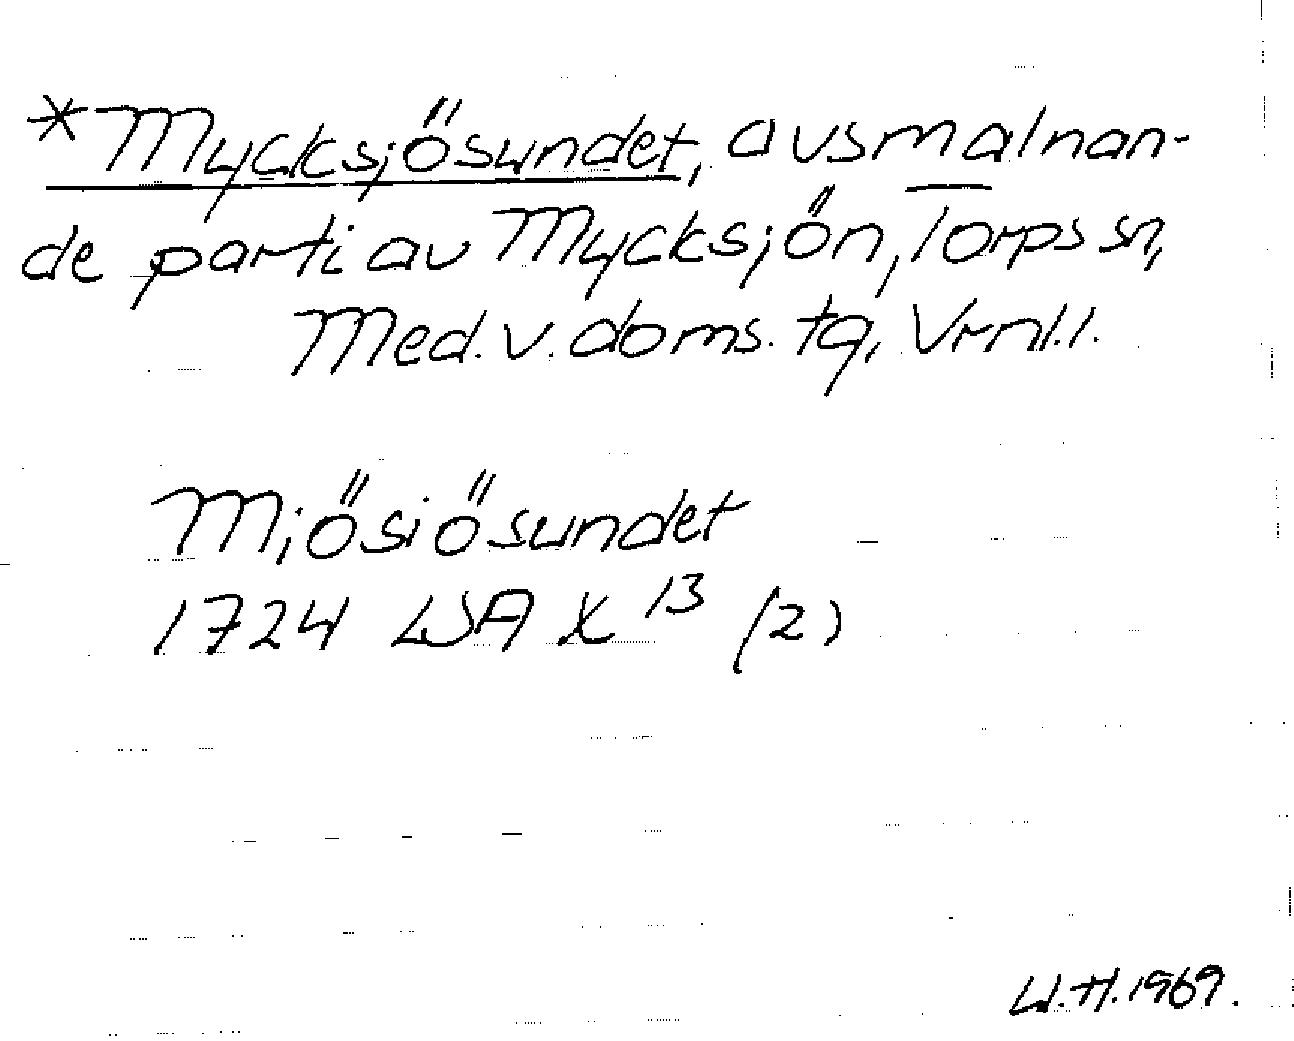 *Mycksjösundet, avsmalnan-
de parti av Mycksjön, Torps sn,
Med. v. doms. tg, Vrnl.l.
Miösiösundet
1724 LSA X 13 (2)
W.H. 1969.